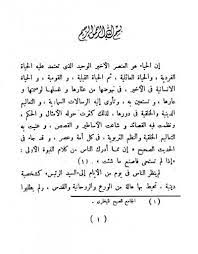 بسم الله الرحمن الرحيم
إن الحياء هو العنصر الأخير الوحيد الذي تعتمد عليه الحياة
الفردية والحياة العائلية ، ثم الحياة القبلية ، و القومية ، و الحياة
الانسانية في الأخير ، في نهوضها من عثارها ، و غسلها
عارها ، و تستعين به ، و تأوى إليه الرسالات السماوية ، و التعاليم
الدينية و الخلقية ، في كل عصر و دور ، لذلك كثرت حوله الأمثال و الحكم ،
ونظمت فيه القصائد ، و شاعت الأساطير ، و القصص ، و عنيت به
التعاليم الخلقية والنظم التربوية ، كل عناية ، و
الحديث الصحيح « إن مما أدرك الناس من كلام النبوة الأولى :
إذا لم تستحى فاصنع ما شئت » (١)
الناس في يوم من الأيام إلى « السيد الرئيس » كشخصية
دينية ، تحيط بها هالة من الورع والروحانية والقدس ، و لم يطلبوا
(١) الجامع الصحيح للبخارى .
( ١ )